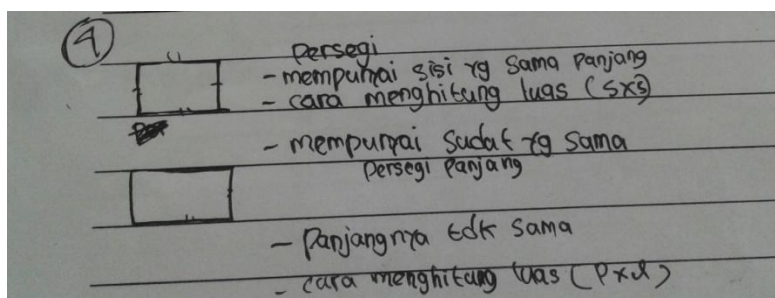 4
Persegi
- mempunyai sisi yg sama panjang
- cara menghitung luas (sxs)
- mempunyai sudat yg sama
Persegi Panjang
- Panjangnya tdk sama
- cara menghitung luas (pxl)